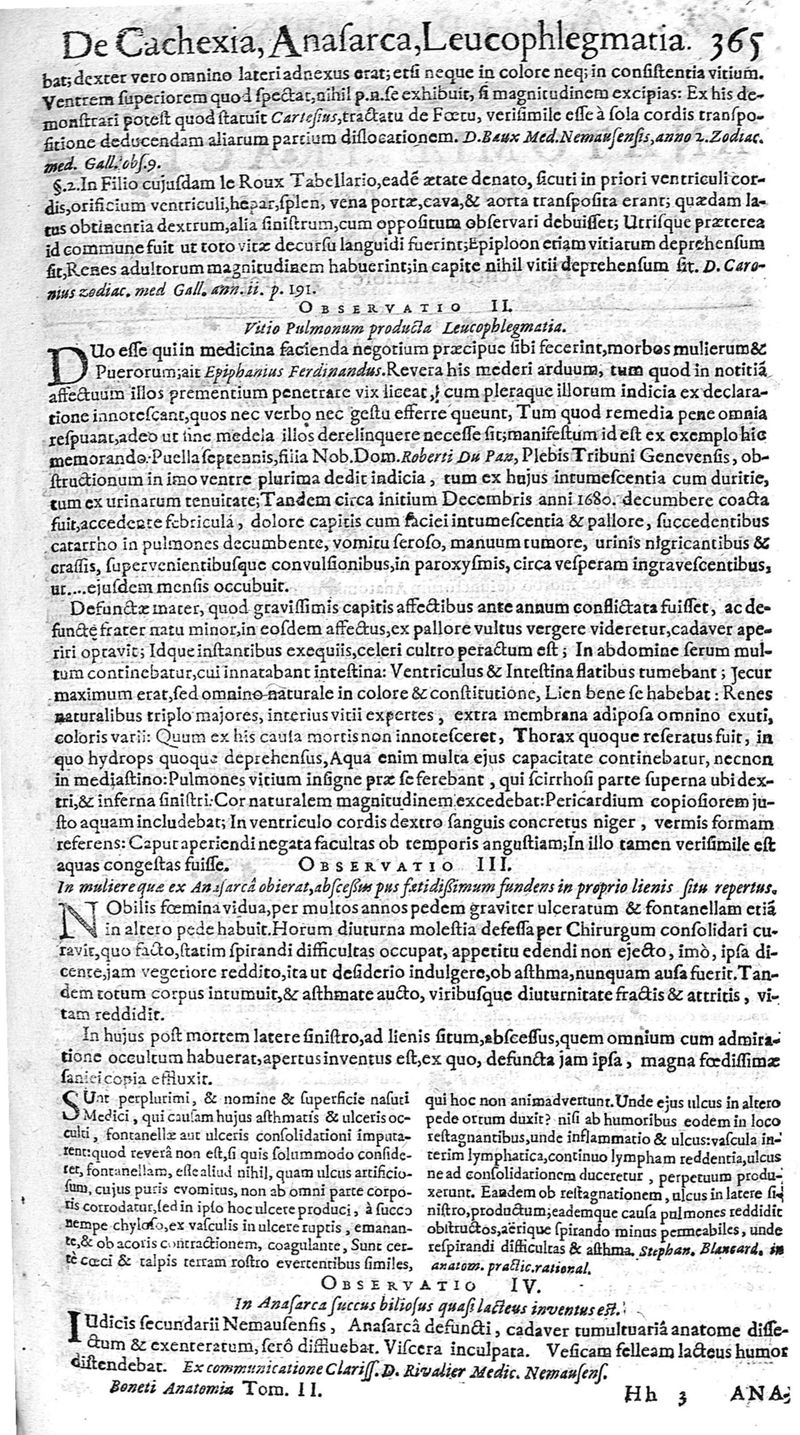 De Cachexia, Anaſarca, Leucophlegmatia. 365
bat; dexter vero omnino lateri adnexus erat; etſi neque in colore neq; in conſiſtentia vitium.
Ventrem ſuperiorem quod ſpectat, nihil p.n. ſe exhibuit, ſi magnitudinem excipias: Ex his de-
monſtrari poteſt quod ſtatuit Carteſius, tractatu de Fœtu, veriſimile eſſe à ſola cordis tranſpo-
ſitione deducendam aliarum partium diſlocationem. D. Baux Med. Nemauſenſis, anno 2. Zodiac.
med. Gall. obſ. 9.
§. 2. In Filio cujuſdam le Roux Tabellario, eadē ætate denato, ſicuti in priori ventriculi cor-
dis, orificium ventriculi, hepar, ſplen, vena portæ, cava, & aorta tranſpoſita erant; quædam la-
tus obtinentia dextrum, alia ſiniſtrum, cum oppoſitum obſervari debuiſſet; Utriſque præterea
id commune fuit ut toto vitæ decurſu languidi fuerint; Epiploon etiam vitiatum deprehenſum
ſit, Renes adultorum magnitudinem habuerint; in capite nihil vitii deprehenſum ſit. D. Caro-
nius zodiac. med Gall. ann. ii. p. 191.
OBSERVATIO II.
Vitio Pulmonum producta Leucophlegmatia.
DUo eſſe qui in medicina facienda negotium præcipue ſibi fecerint, morbos mulierum &
Puerorum; ait Epiphanius Ferdinandus. Revera his mederi arduum, tum quod in notitiā
affectuum illos prementium penetrare vix liceat, cum pleraque illorum indicia ex declara-
tione innoteſcant, quos nec verbo nec geſtu efferre queunt, Tum quod remedia pene omnia
reſpuant, adeo ut ſine medela illos derelinquere neceſſe ſit; manifeſtum id eſt ex exemplo hic
memorando. Puella ſeptennis, filia Nob. Dom. Roberti Du Pan, Plebis Tribuni Genevenſis, ob-
ſtructionum in imo ventre plurima dedit indicia, tum ex hujus intumeſcentia cum duritie,
tum ex urinarum tenuitate; Tandem circa initium Decembris anni 1680. decumbere coacta
fuit, accedente febriculâ, dolore capitis cum faciei intumeſcentia & pallore, ſuccedentibus
catarrho in pulmones decumbente, vomitu ſeroſo, manuum tumore, urinis nigricantibus &
craſſis, ſupervenientibuſque convulſionibus, in paroxyſmis, circa veſperam ingraveſcentibus,
ut.... ejuſdem menſis occubuit.
Defunctæ mater, quod graviſſimis capitis affectibus ante annum conflictata fuiſſet, ac de-
functę frater natu minor, in eoſdem affectus, ex pallore vultus vergere videretur, cadaver ape-
riri optavit; Idque inſtantibus exequiis, celeri cultro peractum eſt; In abdomine ſerum mul-
tum continebatur, cui innatabant inteſtina: Ventriculus & Inteſtina flatibus tumebant; Jecur
maximum erat, ſed omnino naturale in colore & conſtitutione, Lien bene ſe habebat: Renes
naturalibus triplo majores, interius vitii expertes, extra membrana adipoſa omnino exuti,
coloris varii: Quum ex his cauſa mortis non innoteſceret, Thorax quoque reſeratus fuit, in
quo hydrops quoque deprehenſus, Aqua enim multa ejus capacitate continebatur, necnon
in mediaſtino: Pulmones vitium inſigne præ ſe ferebant, qui ſcirrhoſi parte superna ubi dex-
tri, & inferna ſiniſtri: Cor naturalem magnitudinem excedebat: Pericardium copioſiorem ju-
ſto aquam includebat; In ventriculo cordis dextro ſanguis concretus niger, vermis formam
referens: Caput aperiendi negata facultas ob temporis anguſtiam; In illo tamen veriſimile eſt
aquas congeſtas fuiſſe. OBSERVATIO III.
In muliere quæ ex Anaſarcâ obierat, abſceſſus pus fœtidiſſimum fundens in proprio lienis ſitu repertus.
NObilis fœmina vidua, per multos annos pedem graviter ulceratum & fontanellam etiā
in altero pede habuit. Horum diuturna moleſtia defeſſa per Chirurgum conſolidari cu-
ravit, quo facto, ſtatim ſpirandi difficultas occupat, appetitu edendi non ejecto, imò, ipſa di-
cente, jam vegetiore reddito, ita ut deſiderio indulgere, ob aſthma, nunquam auſa fuerit. Tan-
dem totum corpus intumuit, & aſthmate aucto, viribuſque diuturnitate fractis & attritis, vi-
tam reddidit.
In hujus poſt mortem latere ſiniſtro, ad lienis ſitum, abſceſſus, quem omnium cum admira-
tione occultum habuerat, apertus inventus eſt, ex quo, defuncta jam ipſa, magna fœdiſſimæ
ſaniei copia effluxit.
SUnt perplurimi, & nomine & ſuperficie naſuti
Medici, qui cauſam hujus aſthmatis & ulceris oc-
culti, fontanellæ aut ulceris conſolidationi imputa-
rent: quod reverâ non eſt, ſi quis ſolummodo conſide-
ret, fontanellam, eſſe aliud nihil, quam ulcus artificio-
ſum, cujus puris evomitus, non ab omni parte corpo-
ris corrodatur, ſed in ipſo hoc ulcere produci, à ſucco
nempe chyloſo, ex vaſculis in ulcere ruptis, emanan-
te, & ob acoris contractionem, coagulante, Sunt cer-
tè cœci & talpis terram roſtro evertentibus ſimiles,
qui hoc non animadvertunt. Unde ejus ulcus in altero
pede ortum duxit? niſi ab humoribus eodem in loco
reſtagnantibus, unde inflammatio & ulcus: vaſcula in-
terim lymphatica, continuo lympham reddentia, ulcus
ne ad conſolidationem duceretur, perpetuum produ-
xerunt. Eandem ob reſtagnationem, ulcus in latere ſi-
niſtro, productum; eademque cauſa pulmones reddidit
obſtructos, aërique ſpirando minus permeabiles, unde
reſpirandi difficultas & aſthma. Stephan. Blancard. in
anatom. practic. rational.
OBSERVATIO IV.
In Anaſarca ſuccus bilioſus quaſi lacteus inventus eſt.
IUdicis ſecundarii Nemauſenſis, Anaſarcâ defuncti, cadaver tumultuariâ anatome diſſe-
ctum & exenteratum, ſerô diffluebat. Viſcera inculpata. Veſicam felleam lacteus humor
diſtendebat. Ex communicatione Clariſſ. D. Rivalier Medic. Nemauſenſ.
Boneti Anatomia Tom. II.
Hh 3 ANA-